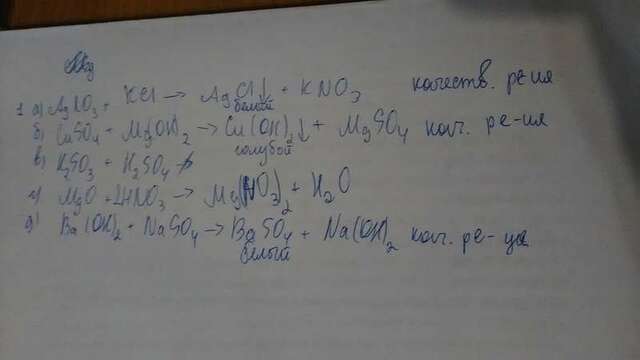 1 а) AgNO₃ + KCl → AgCl↓ + KNO₃ качеств. ре-ия
белый
б) CuSO₄ + Mg(OH)₂ → Cu(OH)₂↓ + MgSO₄ кач. ре-ия
голубой
в) K₂SO₃ + H₂SO₄ →
г) MgO + 2HNO₃ → Mg(NO₃)₂ + H₂O
д) Ba(OH)₂ + NaSO₄ → BaSO₄ + Na(OH)₂ кач. ре-ция
белый